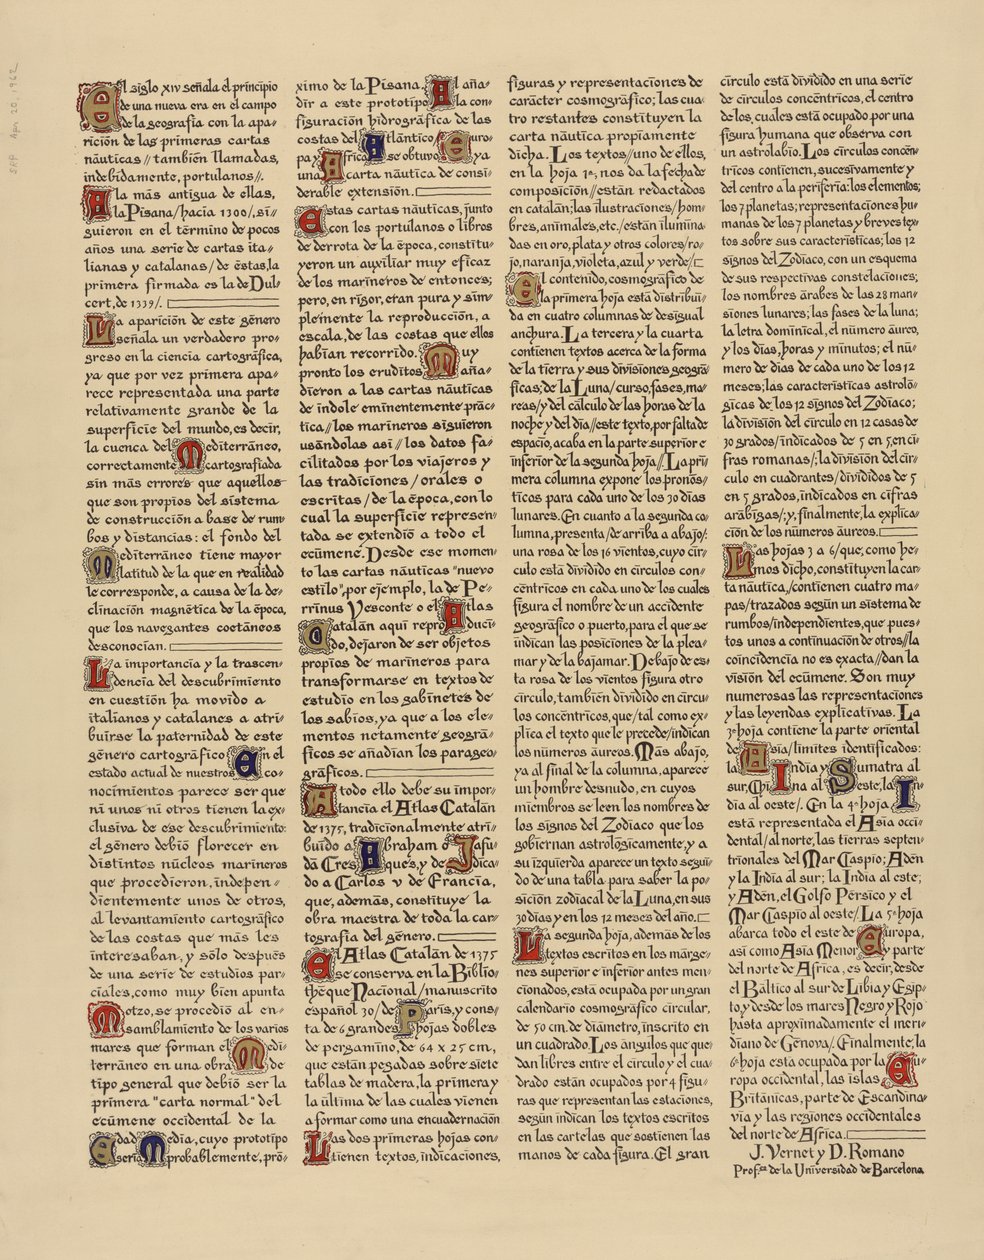 SAP Apr. 20. 1962
El siglo XIV señala el principio
de una nueva era en el campo
de la geografía con la apa-
rición de las primeras cartas
náuticas // también llamadas,
indebidamente, portulanos //.
A la más antigua de ellas,
la Pisana / hacia 1300 /, si-
guieron en el término de pocos
años una serie de cartas ita-
lianas y catalanas / de éstas, la
primera firmada es la de Dul-
cert, de 1339 /.
La aparición de este género
señala un verdadero pro-
greso en la ciencia cartográfica,
ya que por vez primera apa-
rece representada una parte
relativamente grande de la
superficie del mundo, es decir,
la cuenca del Mediterráneo,
correctamente cartografiada
sin más errores que aquellos
que son propios del sistema
de construcción a base de rum-
bos y distancias: el fondo del
Mediterráneo tiene mayor
latitud de la que en realidad
le corresponde, a causa de la de-
clinación magnética de la época,
que los navegantes coetáneos
desconocían.
La importancia y la trascen-
dencia del descubrimiento
en cuestión ha movido a
italianos y catalanes a atri-
buirse la paternidad de este
género cartográfico. En el
estado actual de nuestros co-
nocimientos parece ser que
ni unos ni otros tienen la ex-
clusiva de ese descubrimiento:
el género debió florecer en
distintos núcleos marineros
que procedieron, indepen-
dientemente unos de otros,
al levantamiento cartográfico
de las costas que más les
interesaban, y sólo después
de una serie de estudios par-
ciales, como muy bien apunta
Motzo, se procedió al en-
samblamiento de los varios
mares que forman el Medi-
terráneo en una obra de
tipo general que debió ser la
primera "carta normal" del
ecúmene occidental de la
Edad Media, cuyo prototipo
sería, probablemente, pró-
ximo de la Pisana. Al aña-
dir a este prototipo la con-
figuración hidrográfica de las
costas del Atlántico, Euro-
pa y África se obtuvo ya
una carta náutica de consi-
derable extensión.
Estas cartas náuticas, junto
con los portulanos o libros
de derrota de la época, constitu-
yeron un auxiliar muy eficaz
de los marineros de entonces;
pero, en rigor, eran pura y sim-
plemente la reproducción, a
escala, de las costas que ellos
habían recorrido. Muy
pronto los eruditos aña-
dieron a las cartas náuticas
de índole eminentemente prác-
tica // los marineros siguieron
usándolas así // los datos fa-
cilitados por los viajeros y
las tradiciones / orales o
escritas / de la época, con lo
cual la superficie represen-
tada se extendió a todo el
ecúmene. Desde ese momen-
to las cartas náuticas "nuevo
estilo", por ejemplo, la de Pe-
rrinus Vesconte o el Atlas
Catalán aquí reproduci-
do, dejaron de ser objetos
propios de marineros para
transformarse en textos de
estudio en los gabinetes de
los sabios, ya que a los ele-
mentos netamente geográ-
ficos se añadían los parageo-
gráficos.
A todo ello debe su impor-
tancia el Atlas Catalán
de 1375, tradicionalmente atri-
buído a Abraham o Jafu-
dà Cresques, y dedica-
do a Carlos V de Francia,
que, además, constituye la
obra maestra de toda la car-
tografía del género.
El Atlas Catalán de 1375
se conserva en la Biblio-
thèque Nacional / manuscrito
español 30 / de París, y cons-
ta de 6 grandes hojas dobles
de pergamino, de 64 x 25 cm,
que están pegadas sobre siete
tablas de madera, la primera y
la última de las cuales vienen
a formar como una encuadernación
Las dos primeras hojas con-
tienen textos, indicaciones,
figuras y representaciones de
carácter cosmográfico; las cua-
tro restantes constituyen la
carta náutica propiamente
dicha. Los textos // uno de ellos,
en la hoja 1ª, nos da la fecha de
composición // están redactados
en catalán; las ilustraciones / hom-
bres, animales, etc. / están ilumina-
das en oro, plata y otros colores / ro-
jo, naranja, violeta, azul y verde /
El contenido, cosmográfico de
la primera hoja está distribuí-
da en cuatro columnas de desigual
anchura. La tercera y la cuarta
contienen textos acerca de la forma
de la tierra y sus divisiones geográ-
ficas; de la Luna / curso, fases, ma-
reas / y del cálculo de las horas de la
noche y del día // este texto, por falta de
espacio, acaba en la parte superior e
inferior de la segunda hoja //. La pri-
mera columna expone los pronós-
ticos para cada uno de los 30 días
lunares. En cuanto a la segunda co-
lumna, presenta / de arriba a abajo /:
una rosa de los 16 vientos, cuyo cír-
culo está dividido en círculos con-
céntricos en cada uno de los cuales
figura el nombre de un accidente
geográfico o puerto, para el que se
indican las posiciones de la plea-
mar y de la bajamar. Debajo de es-
ta rosa de los vientos figura otro
círculo, también dividido en círcu-
los concéntricos, que / tal como ex-
plica el texto que le precede / indican
los números áureos. Más abajo,
ya al final de la columna, aparece
un hombre desnudo, en cuyos
miembros se leen los nombres de
los signos del Zodíaco que los
gobiernan astrológicamente; y a
su izquierda aparece un texto segui-
do de una tabla para saber la po-
sición zodiacal de la Luna, en sus
30 días y en los 12 meses del año.
La segunda hoja, además de los
textos escritos en los márge-
nes superior e inferior antes men-
cionados, está ocupada por un gran
calendario cosmográfico circular,
de 50 cm. de diámetro, inscrito en
un cuadrado. Los ángulos que que-
dan libres entre el círculo y el cua-
drado están ocupados por 4 figu-
ras que representan las estaciones,
según indican los textos escritos
en las cartelas que sostienen las
manos de cada figura. El gran
círculo está dividido en una serie
de círculos concéntricos, el centro
de los cuales está ocupado por una
figura humana que observa con
un astrolabio. Los círculos concén-
tricos contienen, sucesivamente y
del centro a la periferia: los elementos;
los 7 planetas; representaciones hu-
manas de los 7 planetas y breves tex-
tos sobre sus características; los 12
signos del Zodíaco, con un esquema
de sus respectivas constelaciones;
los nombres árabes de las 28 man-
siones lunares; las fases de la luna;
la letra dominical, el número áureo,
y los días, horas y minutos; el nú-
mero de días de cada uno de los 12
meses; las características astroló-
gicas de los 12 signos del Zodíaco;
la división del círculo en 12 casas de
30 grados / indicados de 5 en 5, en ci-
fras romanas /; la división del cír-
culo en cuadrantes / divididos de 5
en 5 grados, indicados en cifras
arábigas /; y, finalmente, la explica-
ción de los números áureos.
Las hojas 3 a 6 / que, como he-
mos dicho, constituyen la car-
ta náutica, / contienen cuatro ma-
pas / trazados según un sistema de
rumbos / independientes, que pues-
tos unos a continuación de otros // la
coincidencia no es exacta // dan la
visión del ecúmene. Son muy
numerosas las representaciones
y las leyendas explicativas. La
3ª hoja contiene la parte oriental
de Asia / límites identificados:
la India y Sumatra al
sur, China al Este, la In-
dia al oeste /. En la 4ª hoja
está representada el Asia occi-
dental / al norte, las tierras septen-
trionales del Mar Caspio; Adén
y la India al sur; la India al este;
y Adén, el Golfo Pérsico y el
Mar Caspio al oeste /. La 5ª hoja
abarca todo el este de Europa,
así como Asia Menor y parte
del norte de África, es decir, desde
el Báltico al sur de Libia y Egip-
to, y desde los mares Negro y Rojo
hasta aproximadamente el meri-
diano de Génova /. Finalmente, la
6ª hoja está ocupada por la Eu-
ropa occidental, las islas
Británicas, parte de Escandina-
via y las regiones occidentales
del norte de África.
J. Vernet y D. Romano
Prof.es de la Universidad de Barcelona